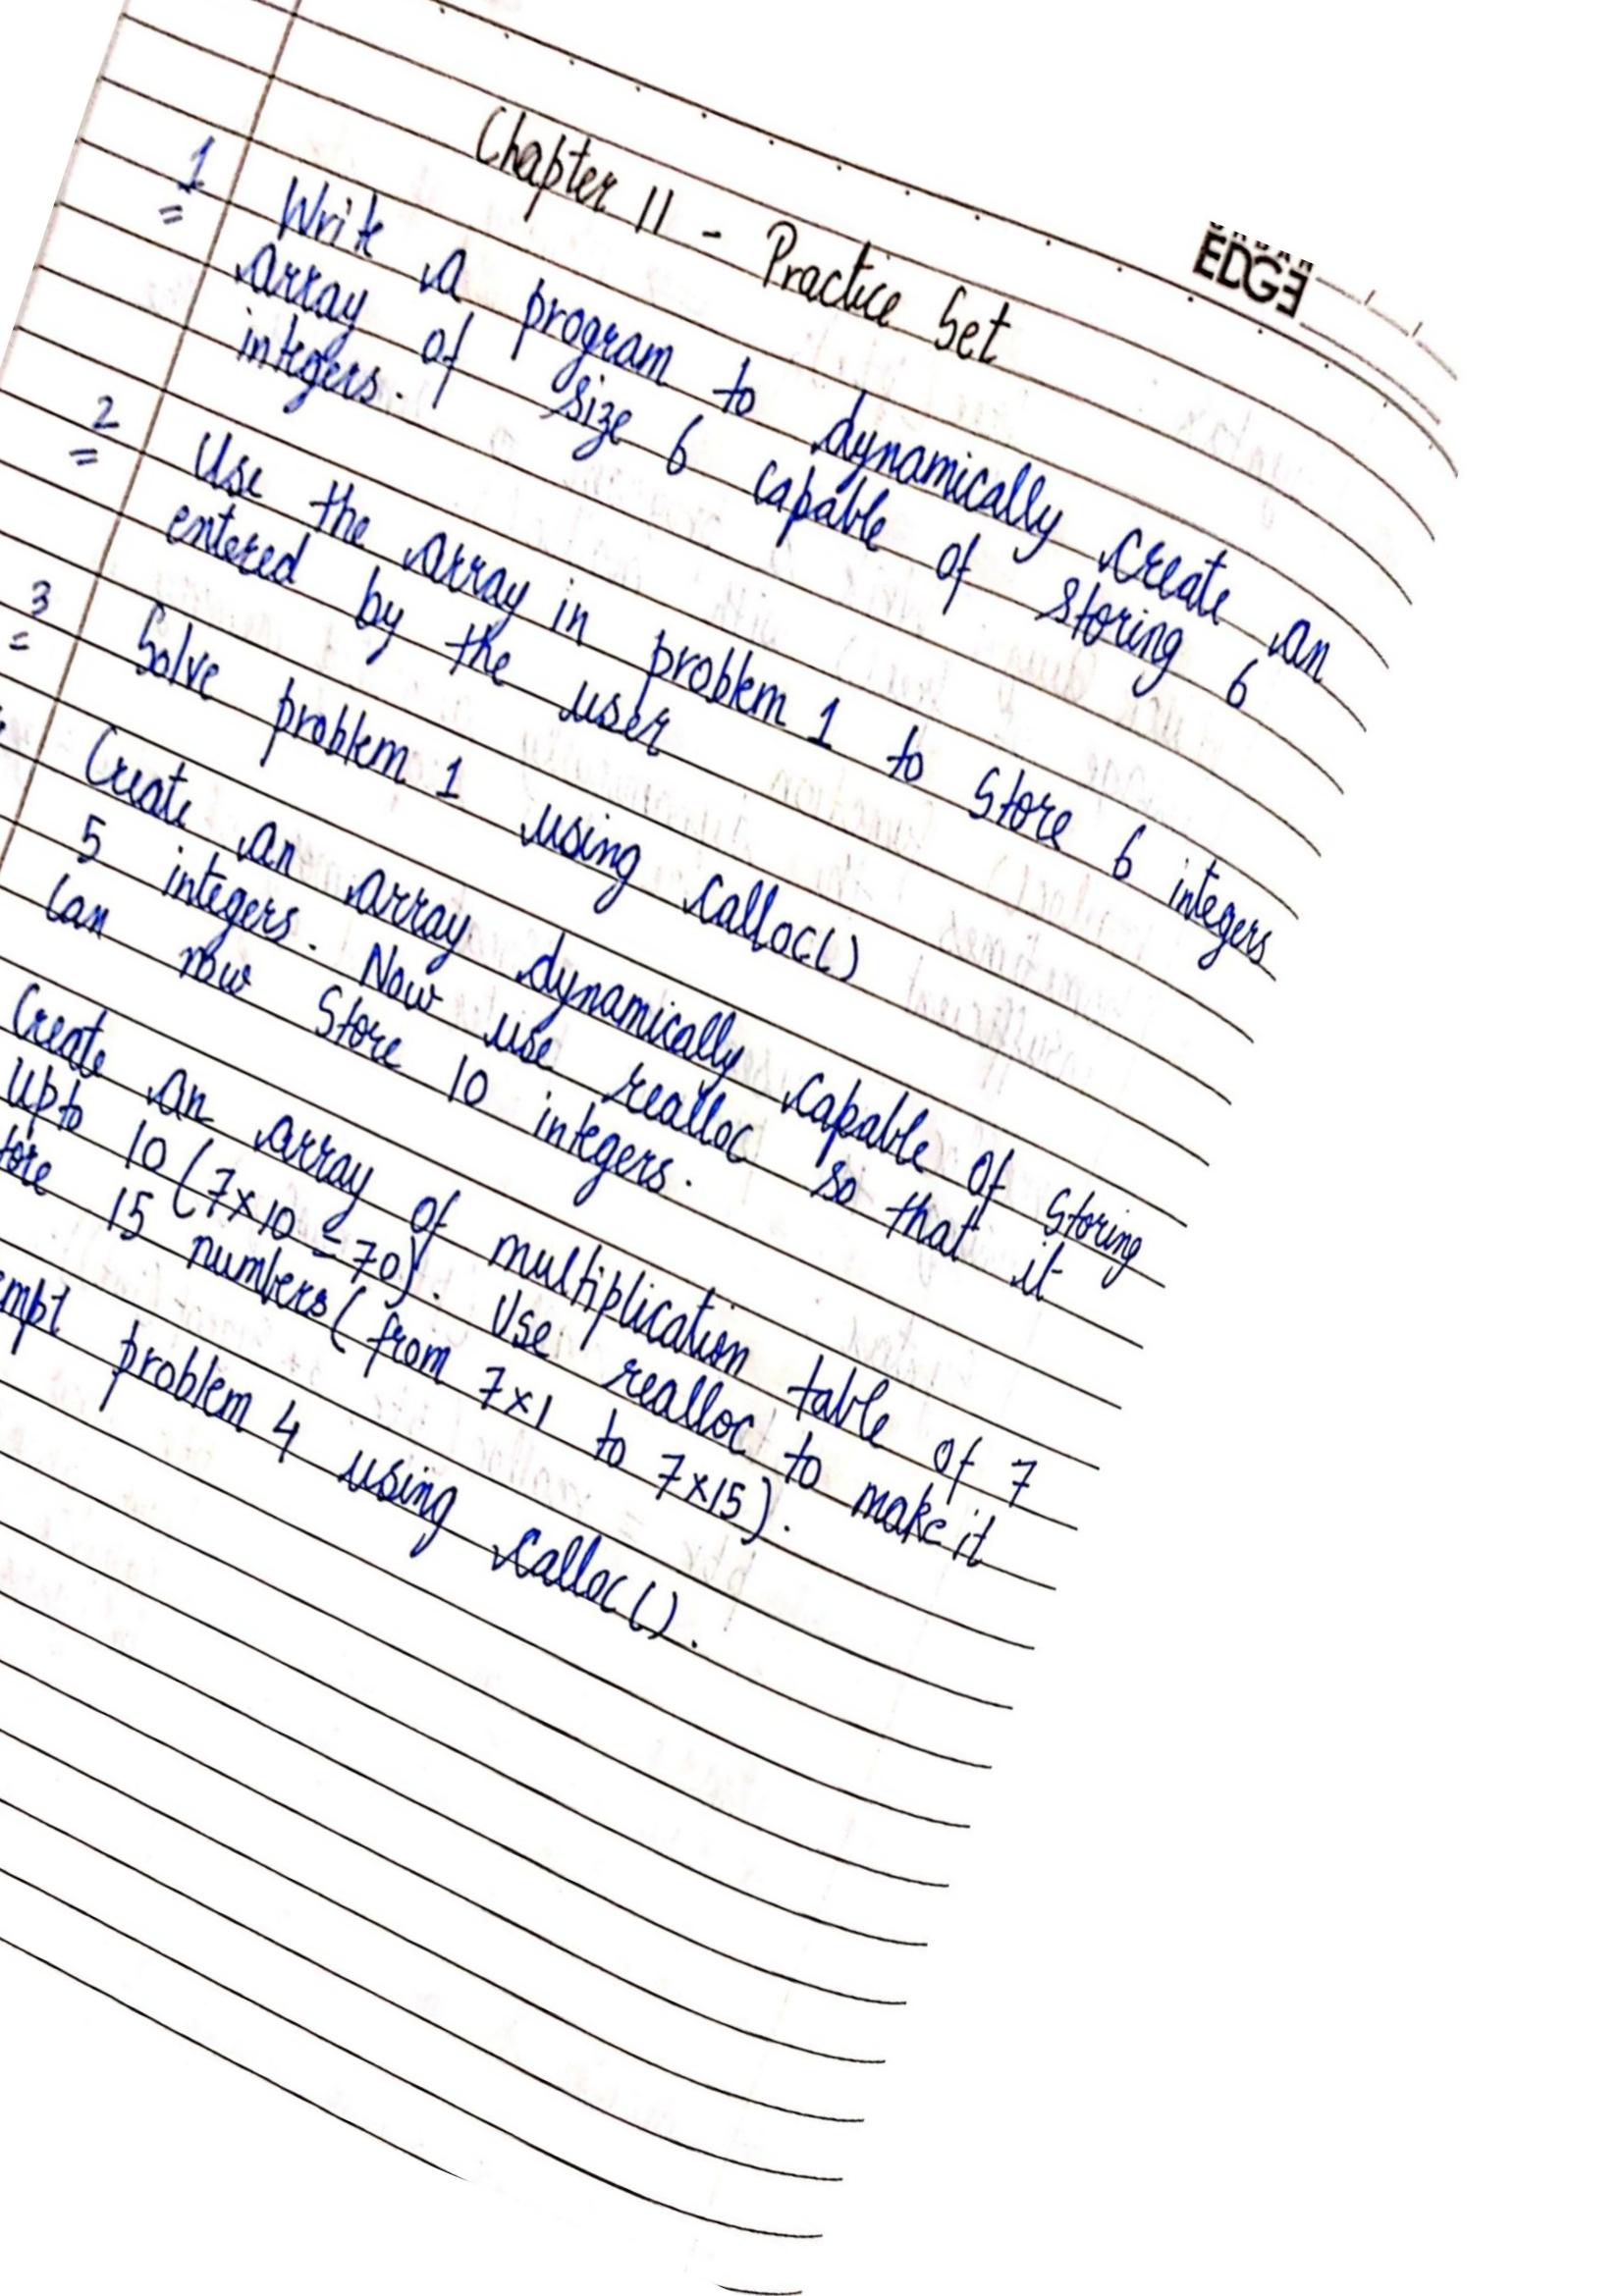 EDGE
Chapter 11 - Practice Set
1 Write a program to dynamically create an
array of size 6 capable of storing 6
integers.
2 Use the array in problem 1 to store 6 integers
entered by the user
3 Solve problem 1 using calloc()
Create an array dynamically capable of storing
5 integers. Now use realloc so that it
can now store 10 integers.
Create an array of multiplication table of 7
upto 10 (7×10 = 70). Use realloc to make it
tore 15 numbers (from 7×1 to 7×15).
empt problem 4 using calloc().